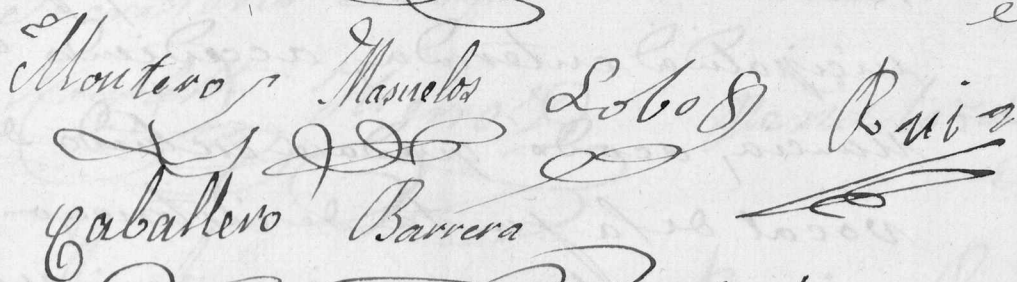 Montero Masuelos Lobo Ruiz
Caballero Barrera